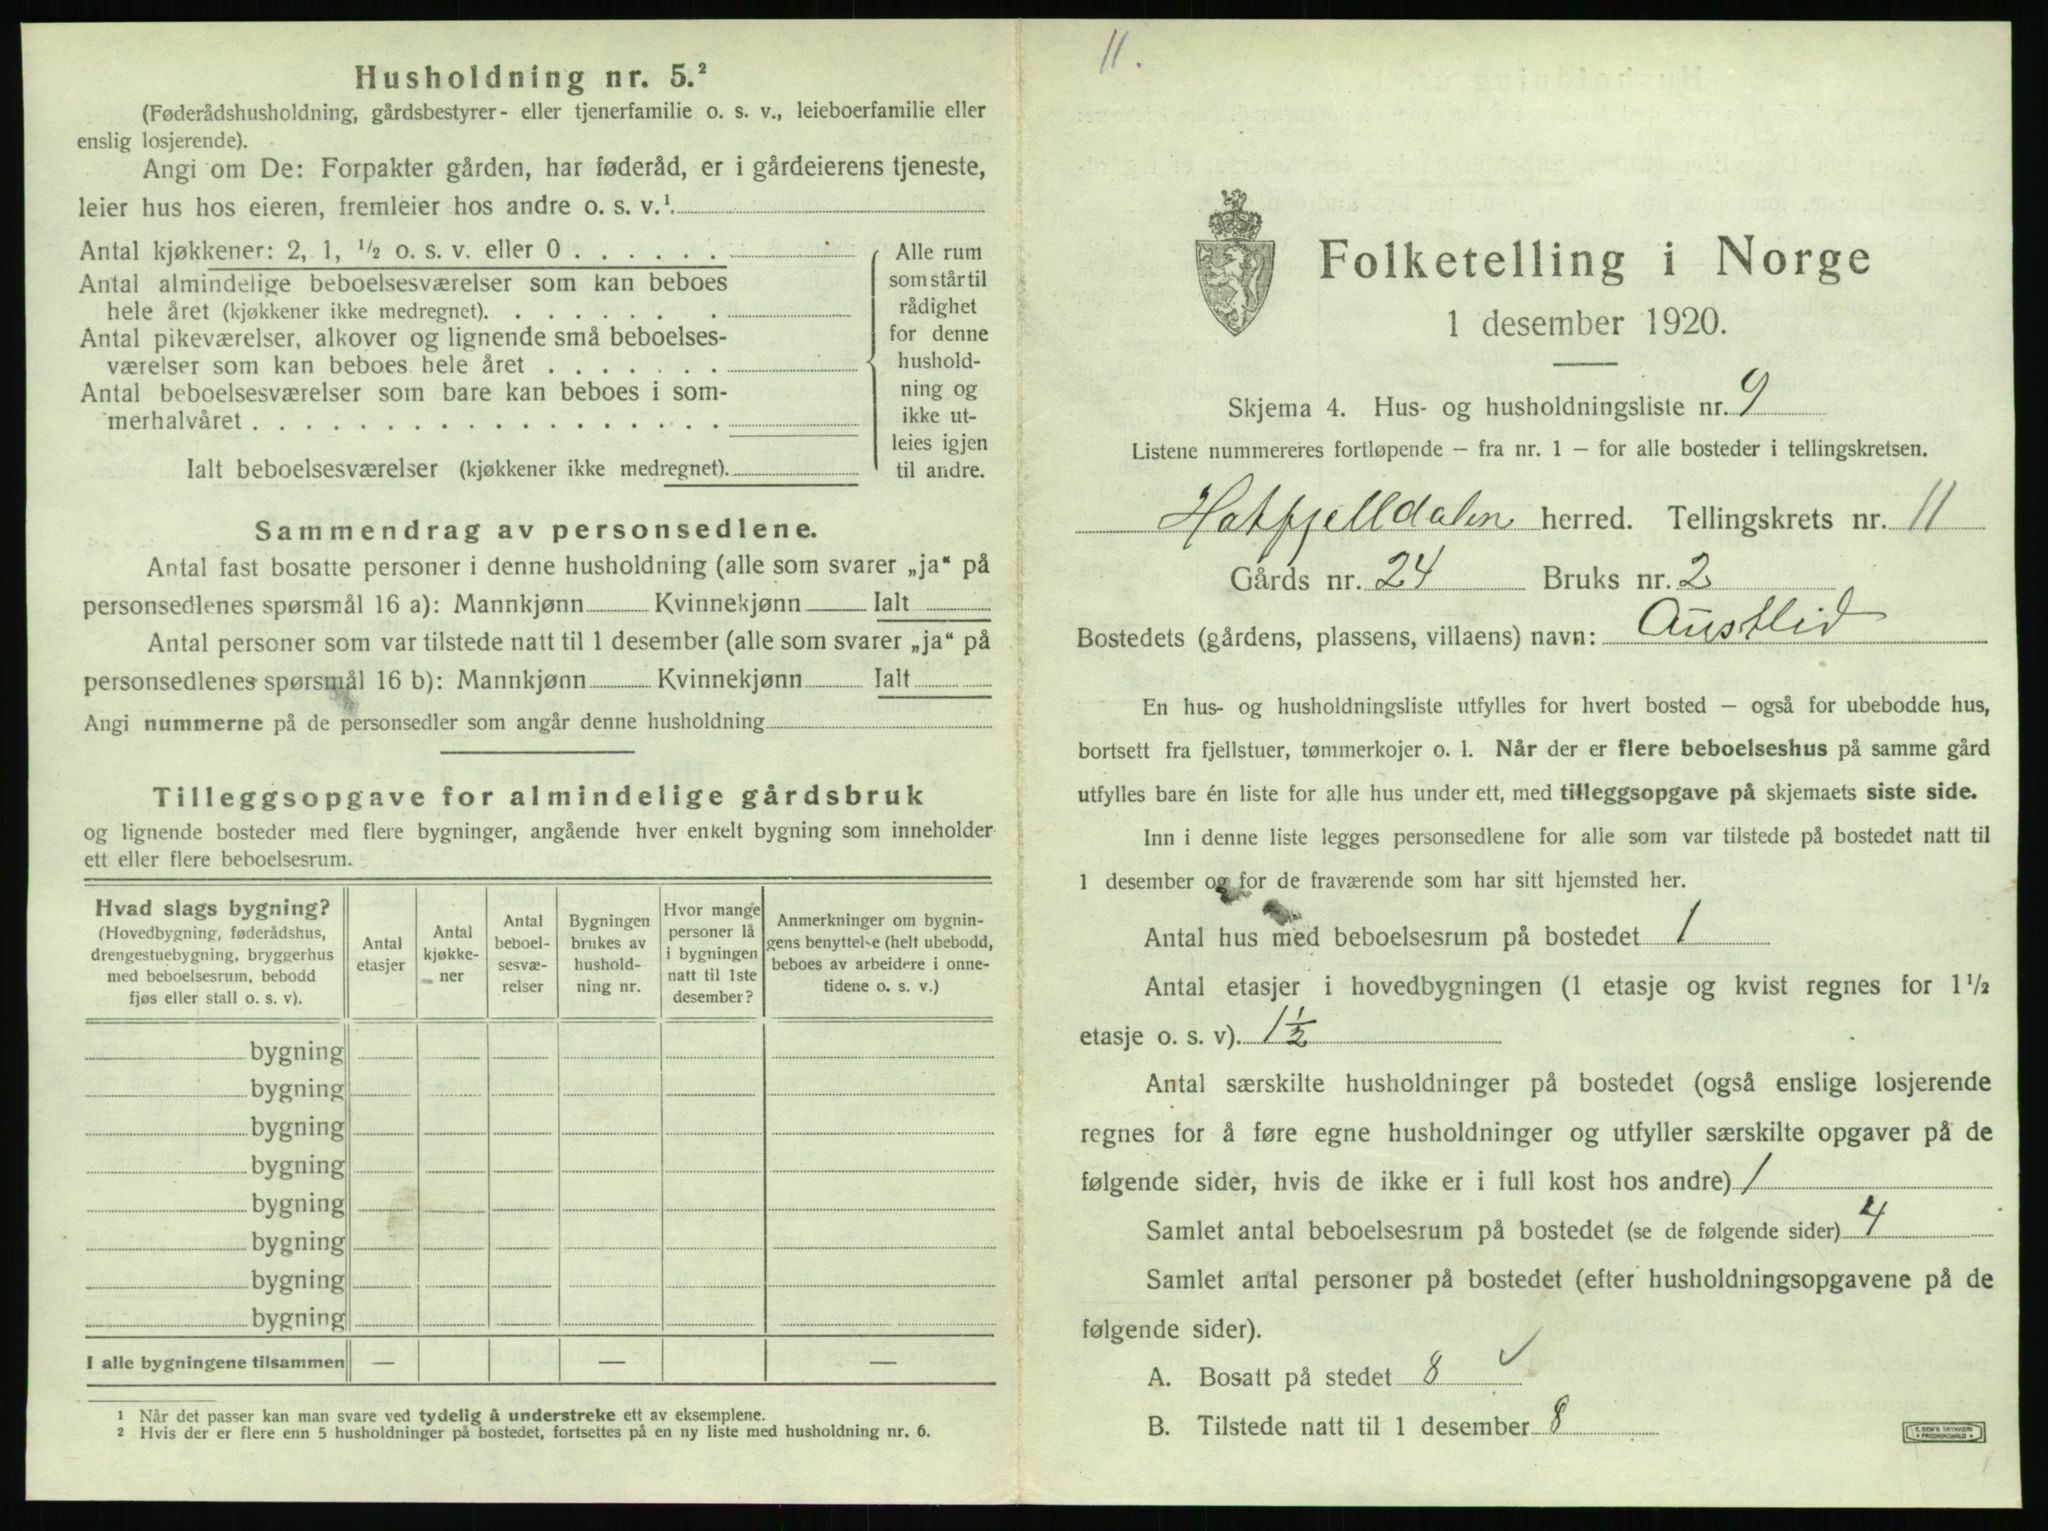 Husholdning nr. 5.²
(Føderådshusholdning, gårdsbestyrer- eller tjenerfamilie o. s. v., leieboerfamilie eller
enslig losjerende).
Angi om De: Forpakter gården, har føderåd, er i gårdeierens tjeneste,
leier hus hos eieren, fremleier hos andre o. s. v.¹
Antal kjøkkener: 2, 1, ½ o. s. v. eller 0 . . . . . .
Antal almindelige beboelsesværelser som kan beboes
hele året (kjøkkener ikke medregnet). . . . . . . .
Antal pikeværelser, alkover og lignende små beboelses-
værelser som kan beboes hele året . . . . . . .
Antal beboelsesværelser som bare kan beboes i som-
merhalvåret . . . . . . . . . . . . . . . . . .
Ialt beboelsesværelser (kjøkkener ikke medregnet).
Alle rum
som står til
rådighet
for denne
hushold-
ning og
ikke ut-
leies igjen
til andre.
Sammendrag av personsedlene.
Antal fast bosatte personer i denne husholdning (alle som svarer „ja“ på
personsedlenes spørsmål 16 a): Mannkjønn Kvinnekjønn Ialt
Antal personer som var tilstede natt til 1 desember (alle som svarer „ja“ på
personsedlenes spørsmål 16 b): Mannkjønn Kvinnekjønn Ialt
Angi nummerne på de personsedler som angår denne husholdning
Tilleggsopgave for almindelige gårdsbruk
og lignende bosteder med flere bygninger, angående hver enkelt bygning som inneholder
ett eller flere beboelsesrum.
Hvad slags bygning?
(Hovedbygning, føderådshus,
drengestuebygning, bryggerhus
med beboelsesrum, bebodd
fjøs eller stall o. s. v).
Antal
etasjer
Antal
kjøkke-
ner
Antal
beboel-
sesvæ-
relser
Bygningen
brukes av
hushold-
ning nr.
Hvor mange
personer lå
i bygningen
natt til 1ste
desember?
Anmerkninger om bygnin-
gens benyttelse (helt ubebodd,
beboes av arbeidere i onne-
tidene o. s. v.)
bygning
bygning
bygning
bygning
bygning
bygning
bygning
bygning
I alle bygningene tilsammen — — —
¹ Når det passer kan man svare ved tydelig å understreke ett av eksemplene.
² Hvis der er flere enn 5 husholdninger på bostedet, fortsettes på en ny liste med husholdning nr. 6.
11.
Folketelling i Norge
1 desember 1920.
Skjema 4. Hus- og husholdningsliste nr. 9
Listene nummereres fortløpende – fra nr. 1 – for alle bosteder i tellingskretsen.
Hatfjelldalen herred. Tellingskrets nr. 11
Gårds nr. 24 Bruks nr. 2
Bostedets (gårdens, plassens, villaens) navn: Austlid
En hus- og husholdningsliste utfylles for hvert bosted – også for ubebodde hus,
bortsett fra fjellstuer, tømmerkojer o. l. Når der er flere beboelseshus på samme gård
utfylles bare én liste for alle hus under ett, med tilleggsopgave på skjemaets siste side.
Inn i denne liste legges personsedlene for alle som var tilstede på bostedet natt til
1 desember og for de fraværende som har sitt hjemsted her.
Antal hus med beboelsesrum på bostedet 1
Antal etasjer i hovedbygningen (1 etasje og kvist regnes for 1½
etasje o. s. v). 1½
Antal særskilte husholdninger på bostedet (også enslige losjerende
regnes for å føre egne husholdninger og utfyller særskilte opgaver på de
følgende sider, hvis de ikke er i full kost hos andre) 1
Samlet antal beboelsesrum på bostedet (se de følgende sider) 4
Samlet antal personer på bostedet (efter husholdningsopgavene på de
følgende sider).
A. Bosatt på stedet 8 ✓
B. Tilstede natt til 1 desember 8
E. SEM'S TRYKKERI
FREDRIKSHALD